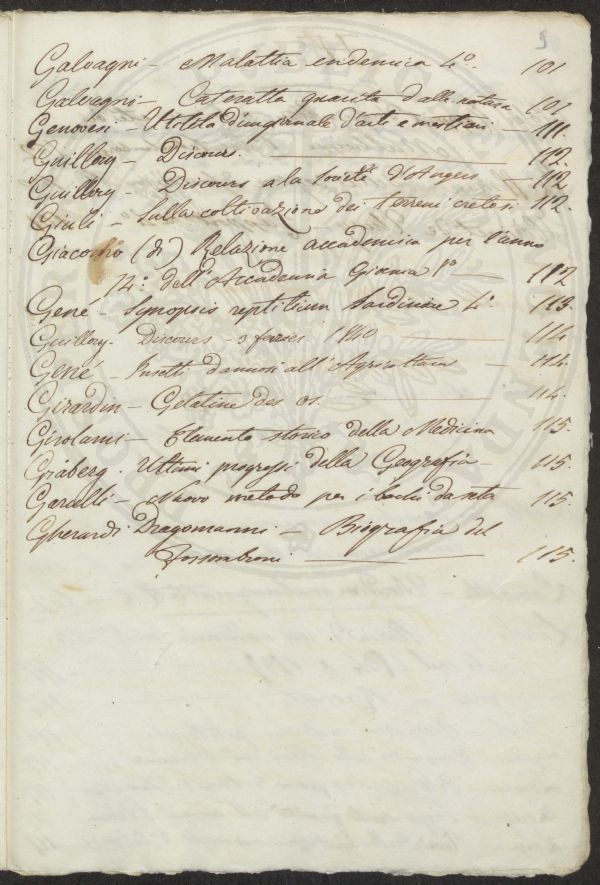 9
Galvagni – Malattia endemica 4°. 101
Galvagni – Cateratta guarita dalla natura 101
Genovesi – Utilità d'un giornale d'arti e mestieri – 111.
Guillory – Discours. 112.
Guillory – Discours a la Société d'Angers – 112
Giuli – Sulla coltivazione dei terreni cretosi 112.
Giacomo (di) Relazione accademica per l'anno
12.° dell'Accademia Gioenia – 112
Gené – Synopsis reptilium Sardiniae 4° 113.
Guillory. Discours – 1840 114
Gené – Insetti dannosi all'Agricoltura – 114.
Girardin – Gelatine des os. 114.
Girolami – Elemento storico della Medicina 115.
Gråberg. Ultimi progressi della Geografia – 115.
Garulli – Nuovo metodo per i bachi da seta 115.
Gherardi Dragomanni – Biografia del
Fossombroni 115.